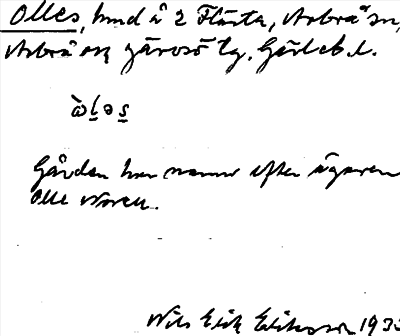 Olles, hmd å 2 Flästa, Arbrå sn,
Arbrå och Järvsö tg, Gävleb. l.
Gården har namn efter ägaren
Olle Norell.
Nils Erik Eriksson 193